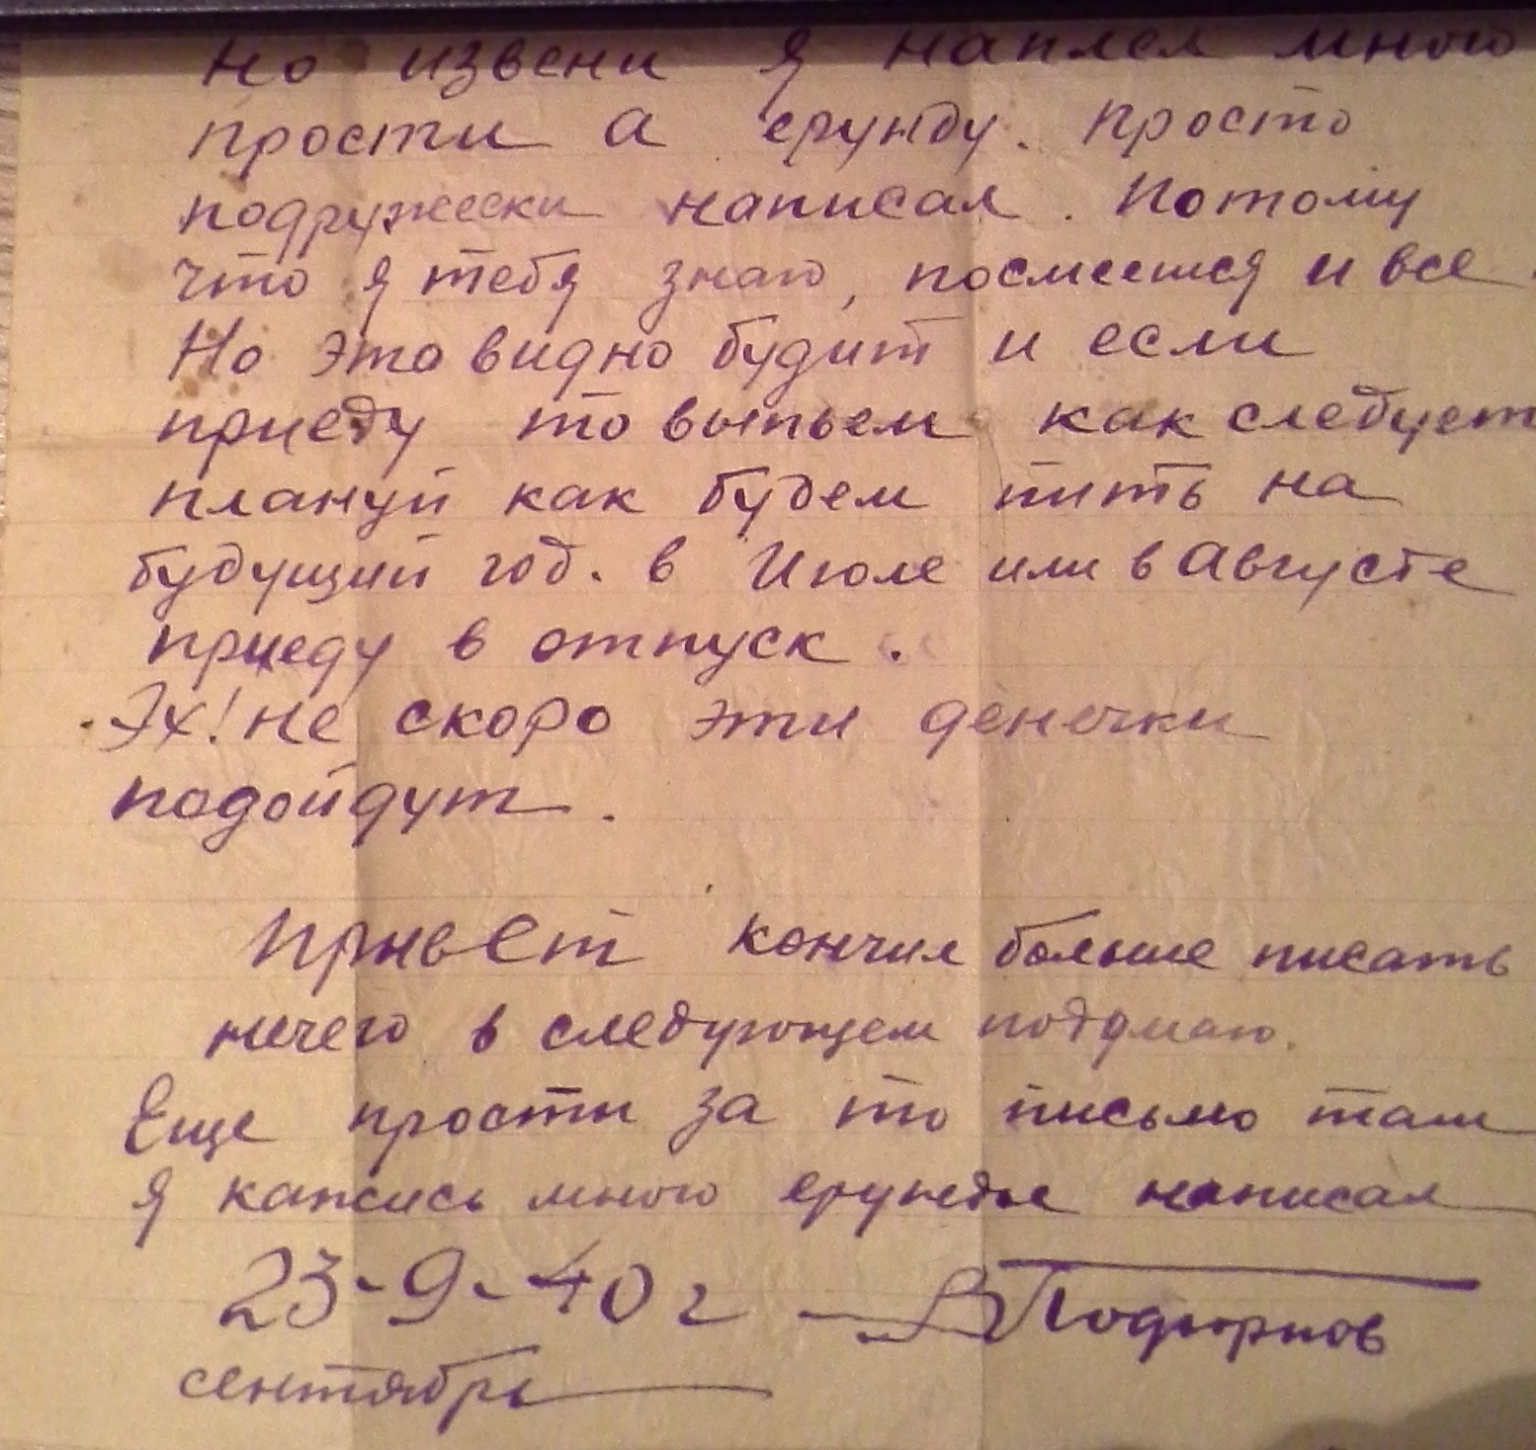 но извени я наплел много
прости а ерунду. просто
подружески написал. Потому
что я тебя знаю, посмеешся и все.
Но это видно будит и если
приеду то выпьем как следует
плануй как будем пить на
будущий год. в Июле или в Августе
приеду в отпуск.
Эх! не скоро эти денечки
подойдут.
Привет кончил больше писать
нечего в следующем подумаю.
Еще прости за то письмо там
я кажись много ерунды написал
23-9-40 г
сентябрь